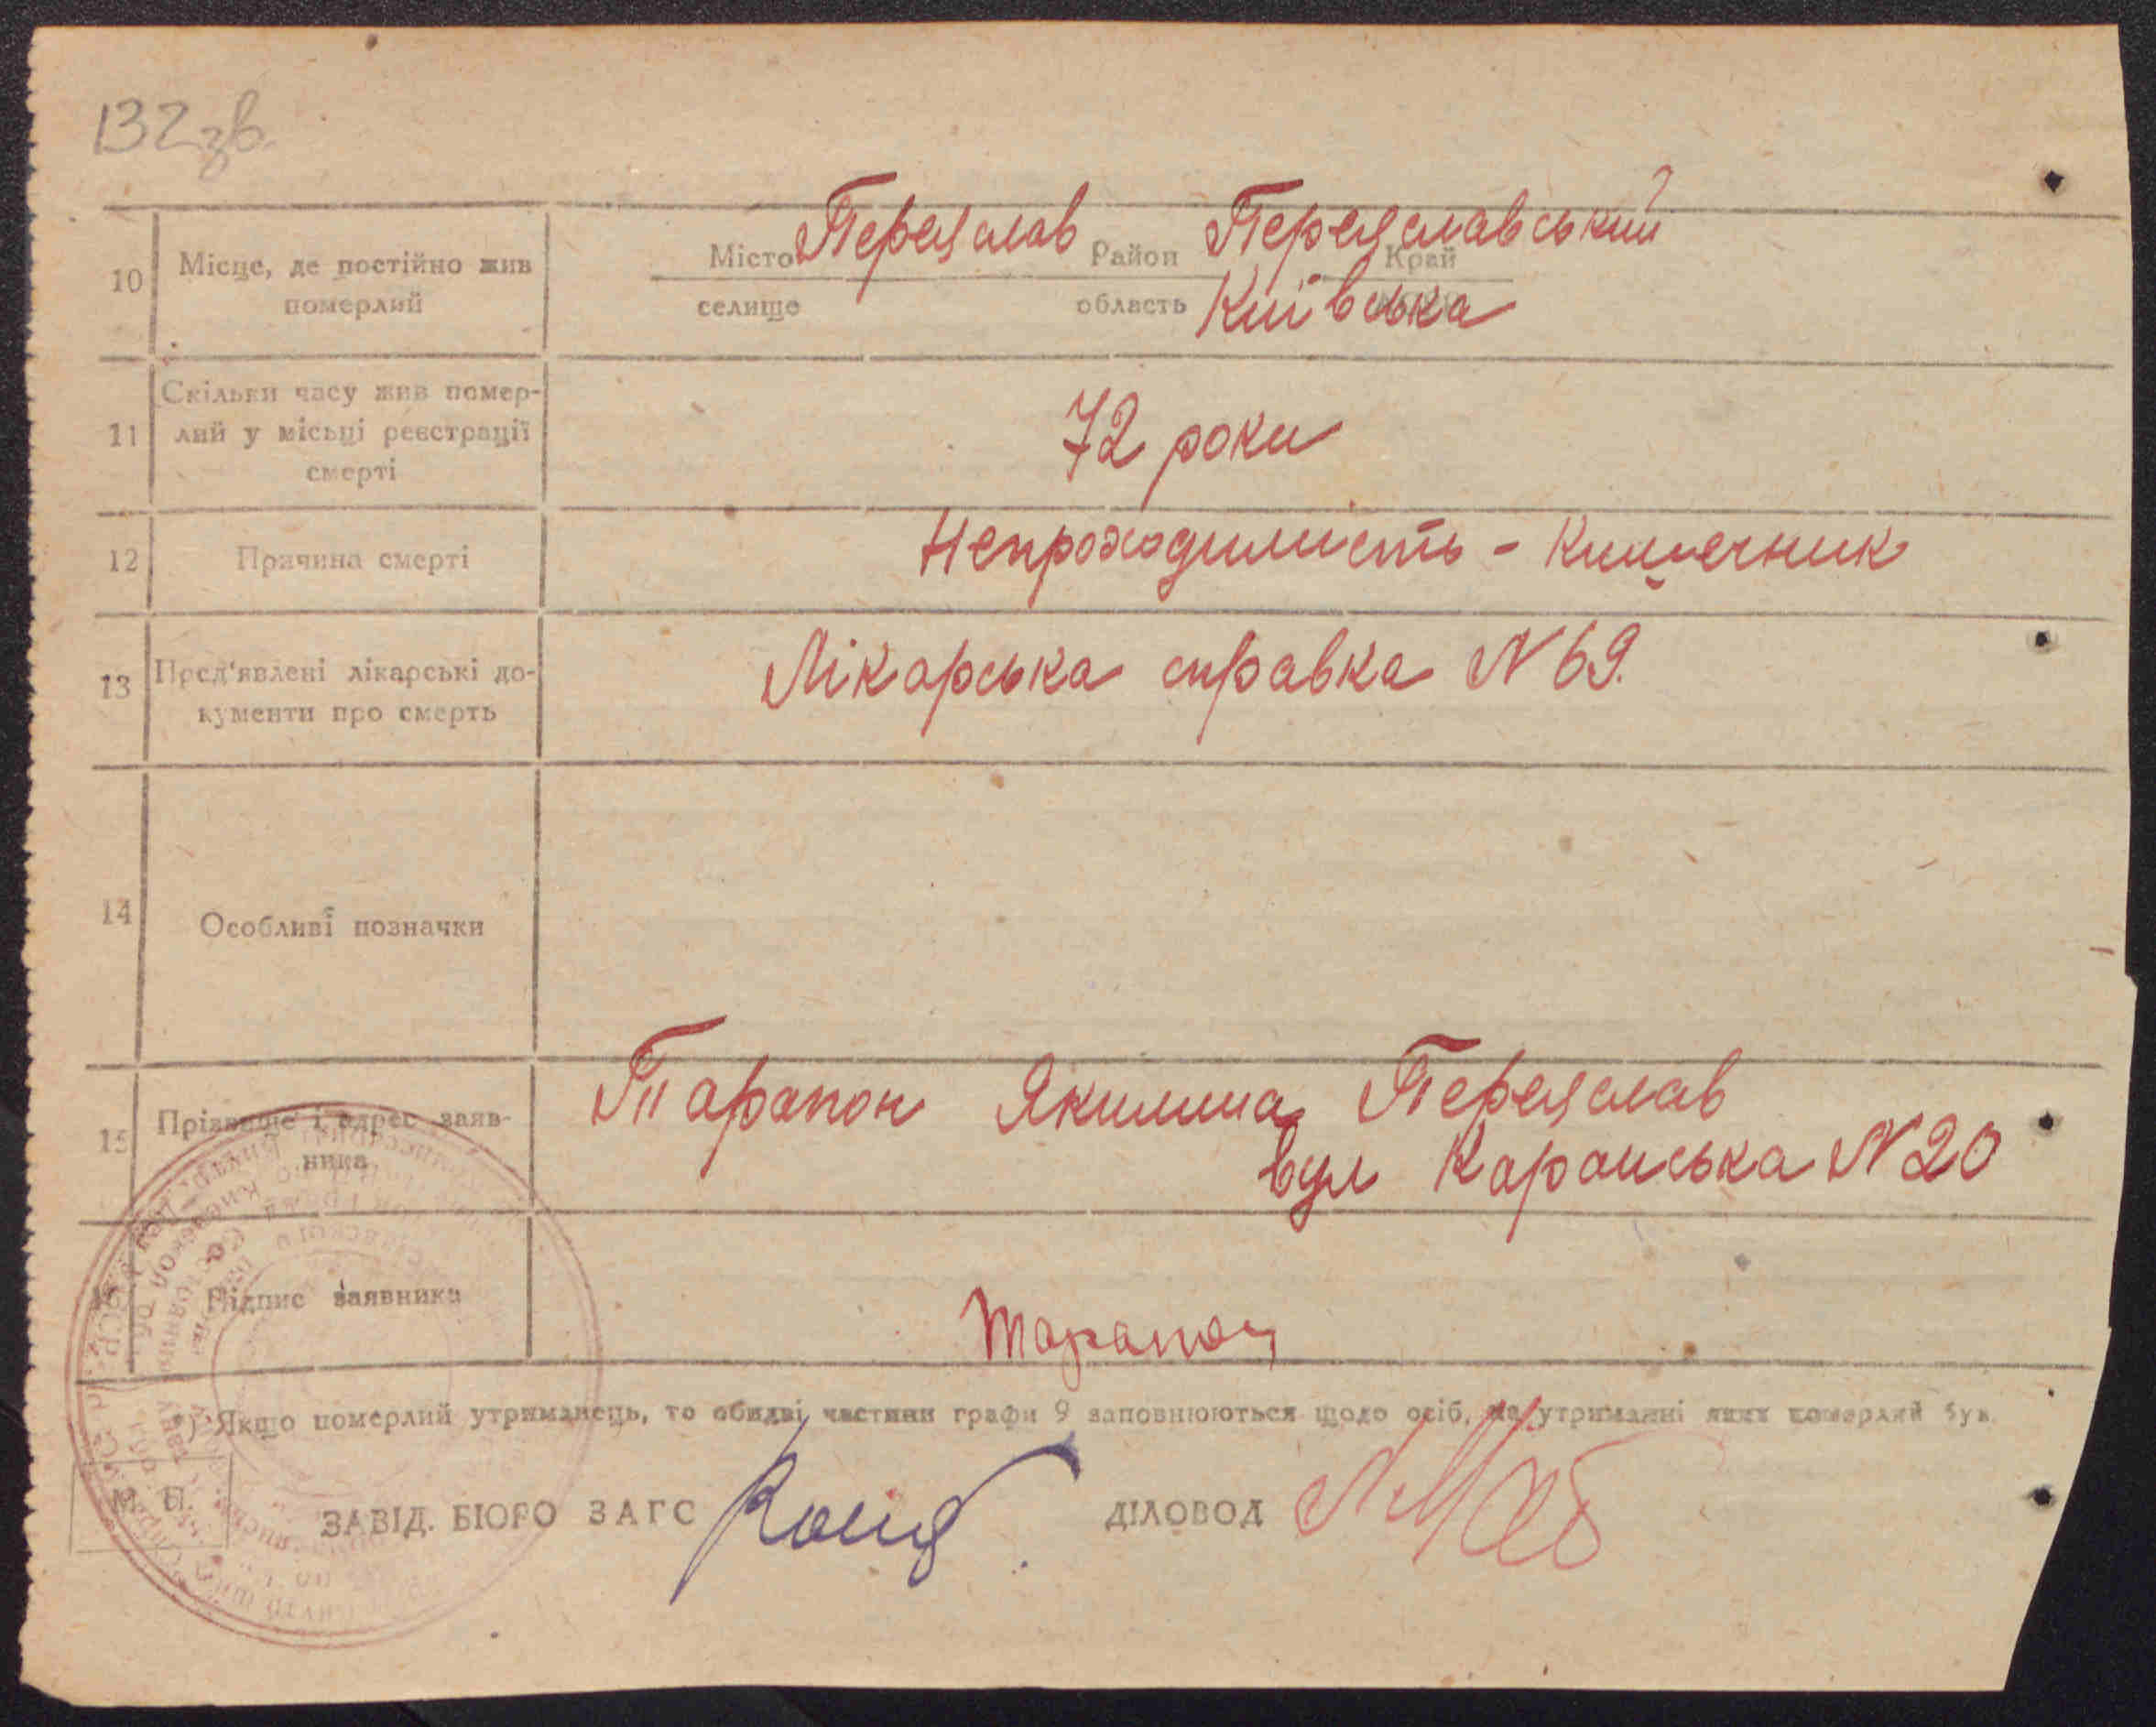 132зв.
10 Місце, де постійно жив померлий
Місто Переяслав Район Переяславський Край
селище область Київська
11 Скільки часу жив помер-
лий у місьці реєстрації
смерті
72 роки
12 Причина смерті Непроходимисть - Кишечник
13 Пред'явлені лікарські до-
кументи про смерть
Лікарська справка N 69.
14 Особливі позначки
15 Прізвище і адрес заяв-
ника
Тарапон Якилина Переяслав
вул Каранська N 20
16 Підпис заявника
Тарапон
*) Якщо померлий утриманець, то обидві частини графи 9 заповнюються щодо осіб, на утриманні яких померлий був.
М. П.
ЗАВІД. БЮРО ЗАГС ДІЛОВОД